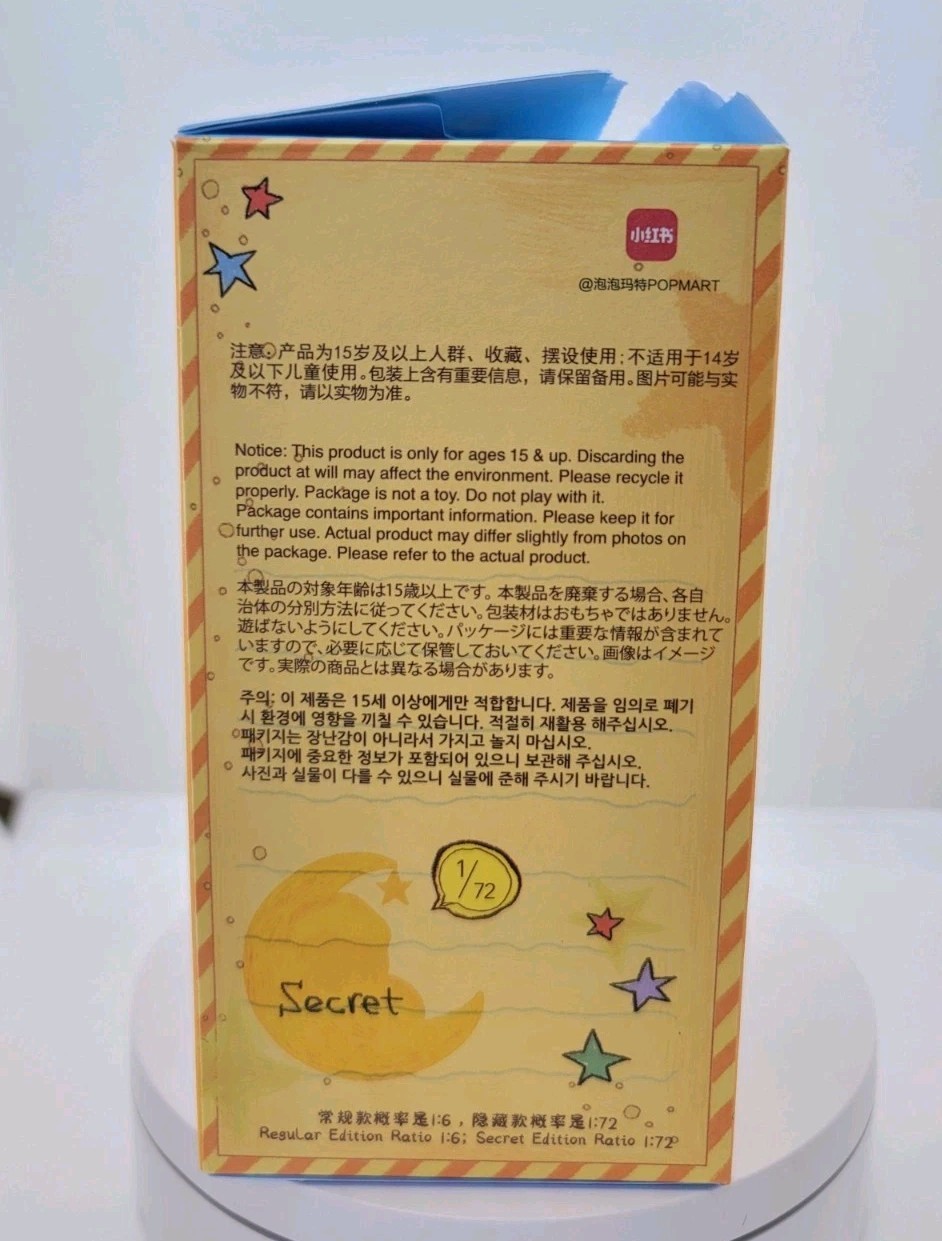 小红书
@泡泡玛特POPMART
注意:产品为15岁及以上人群、收藏、摆设使用;不适用于14岁
及以下儿童使用。包装上含有重要信息，请保留备用。图片可能与实
物不符，请以实物为准。
Notice: This product is only for ages 15 & up. Discarding the
product at will may affect the environment. Please recycle it
properly. Package is not a toy. Do not play with it.
Package contains important information. Please keep it for
further use. Actual product may differ slightly from photos on
the package. Please refer to the actual product.
本製品の対象年齢は15歳以上です。本製品を廃棄する場合、各自
治体の分別方法に従ってください。包装材はおもちゃではありません。
遊ばないようにしてください。パッケージには重要な情報が含まれて
いますので、必要に応じて保管しておいてください。画像はイメージ
です。実際の商品とは異なる場合があります。
주의: 이 제품은 15세 이상에게만 적합합니다. 제품을 임의로 폐기
시 환경에 영향을 끼칠 수 있습니다. 적절히 재활용 해주십시오.
패키지는 장난감이 아니라서 가지고 놀지 마십시오.
패키지에 중요한 정보가 포함되어 있으니 보관해 주십시오.
사진과 실물이 다를 수 있으니 실물에 준해 주시기 바랍니다.
1/72
Secret
常规款概率是1:6，隐藏款概率是1:72
Regular Edition Ratio 1:6; Secret Edition Ratio 1:72